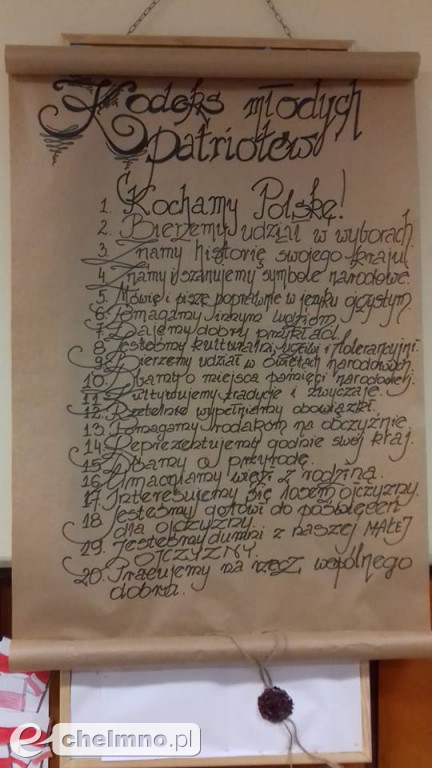 Kodeks młodych
patriotów
1. Kochamy Polskę!
2. Bierzemy udział w wyborach.
3. Znamy historię swojego kraju.
4. Znamy i szanujemy symbole narodowe.
5. Mówię i piszę poprawnie w języku ojczystym
6. Pomagamy innym ludziom.
7. Dajemy dobry przykład.
8. Jesteśmy kulturalni, uczciwi i tolerancyjni.
9. Bierzemy udział w świętach narodowych.
10. Dbamy o miejsca pamięci narodowej.
11. Kultywujemy tradycje i zwyczaje.
12. Rzetelnie wypełniamy obowiązki.
13. Pomagamy rodakom na obczyźnie.
14. Reprezentujemy godnie swój kraj.
15. Dbamy o przyrodę.
16. Umacniamy więzi z rodziną.
17. Interesujemy się losem ojczyzny.
18. Jesteśmy gotowi do poświęceń
dla ojczyzny.
19. Jesteśmy dumni z naszej MAŁEJ
OJCZYZNY.
20. Pracujemy na rzecz wspólnego
dobra.
e-chelmno.pl